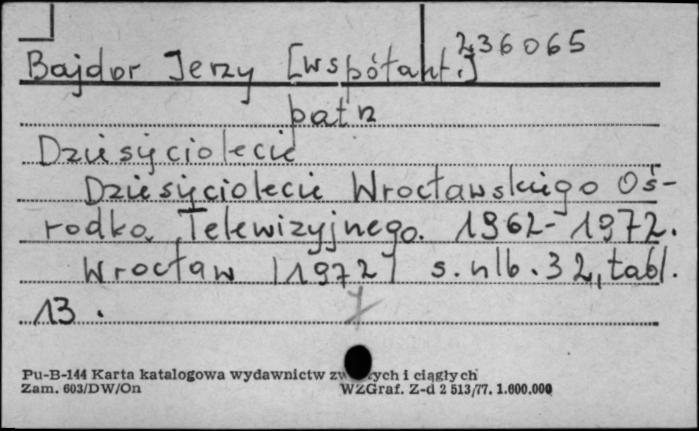 236065
Bajdor Jerzy [współaut.]
patrz
Dziesięciolecie
Dziesięciolecie Wrocławskiego Oś-
rodka Telewizyjnego. 1962-1972.
Wrocław [1972] s. nlb. 32, tabl.
13.
Pu-B-144 Karta katalogowa wydawnictw zw tych i ciągłych
Zam. 603/DW/On WZGraf. Z-d 2 513/77. 1.600.000